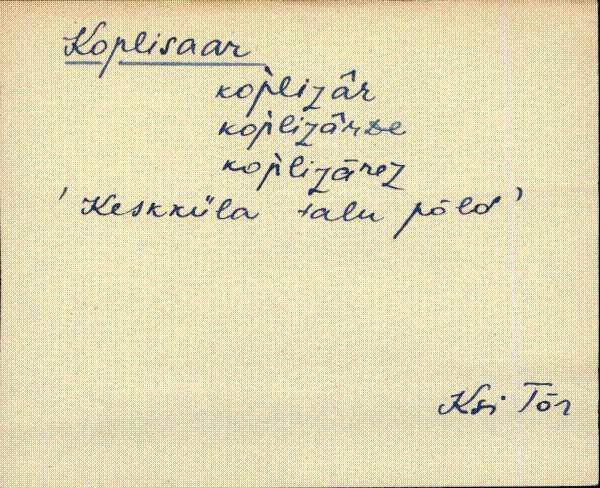 Koplisaar
kop̀lizâr
kop̀lizârde
kop̀lizārez
' Keskküla talu põld '
Ksi Tõr